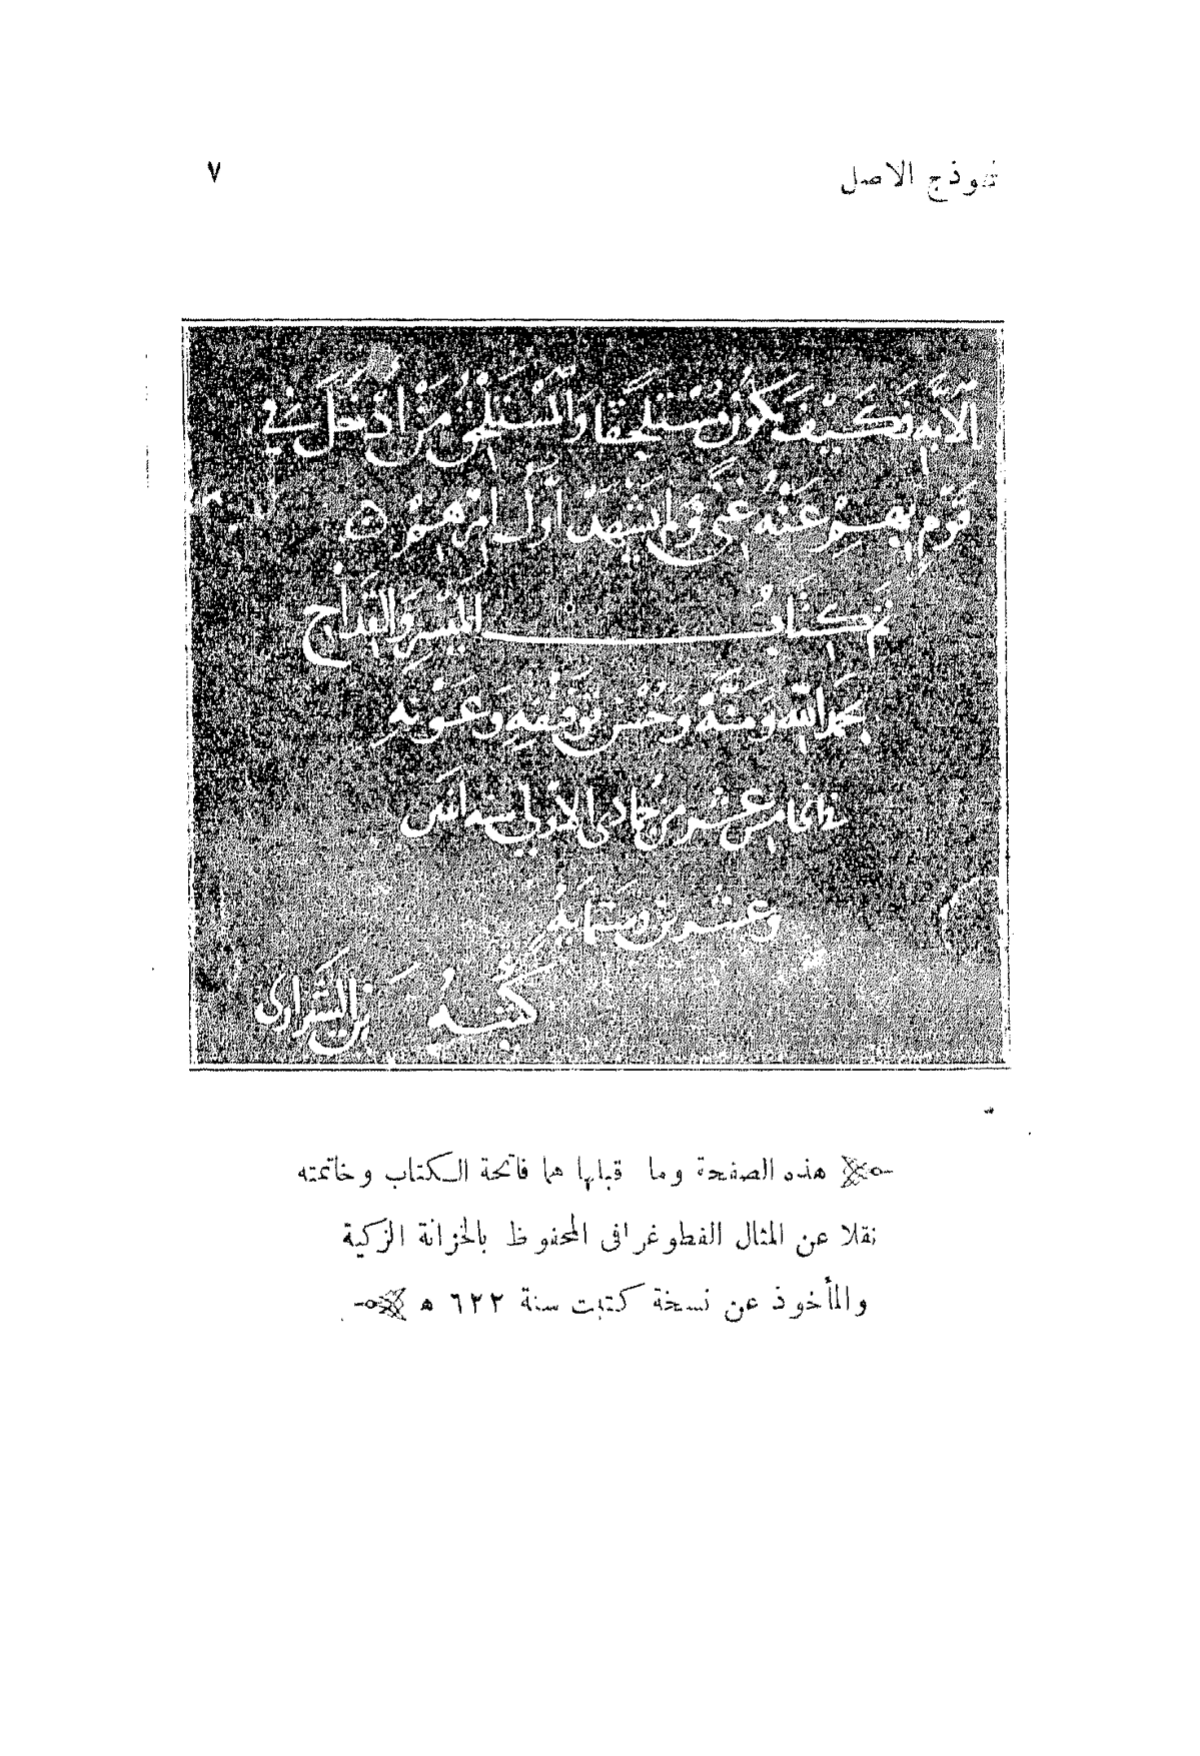 نموذج الاصل ٧
الا به وكيف يكون مستلحقا والمستلحق من ادخل في
قوم بهم عنه غنى ولم يشهد اول امرهم ه
تم كتاب الميسر والقداح
بحمد الله ومنه وحسن توفيقه وعونه
في خامس عشر من جمادى الاولى سنه اثنين
وعشرين وستمايه
كتبه
هذه الصفحة وما قبلها هما فاتحة الكتاب وخاتمته
نقلا عن المثال الفطوغرافى المحفوظ بالخزانة الزكية
والمأخوذ عن نسخة كتبت سنة ٦٢٢ ه